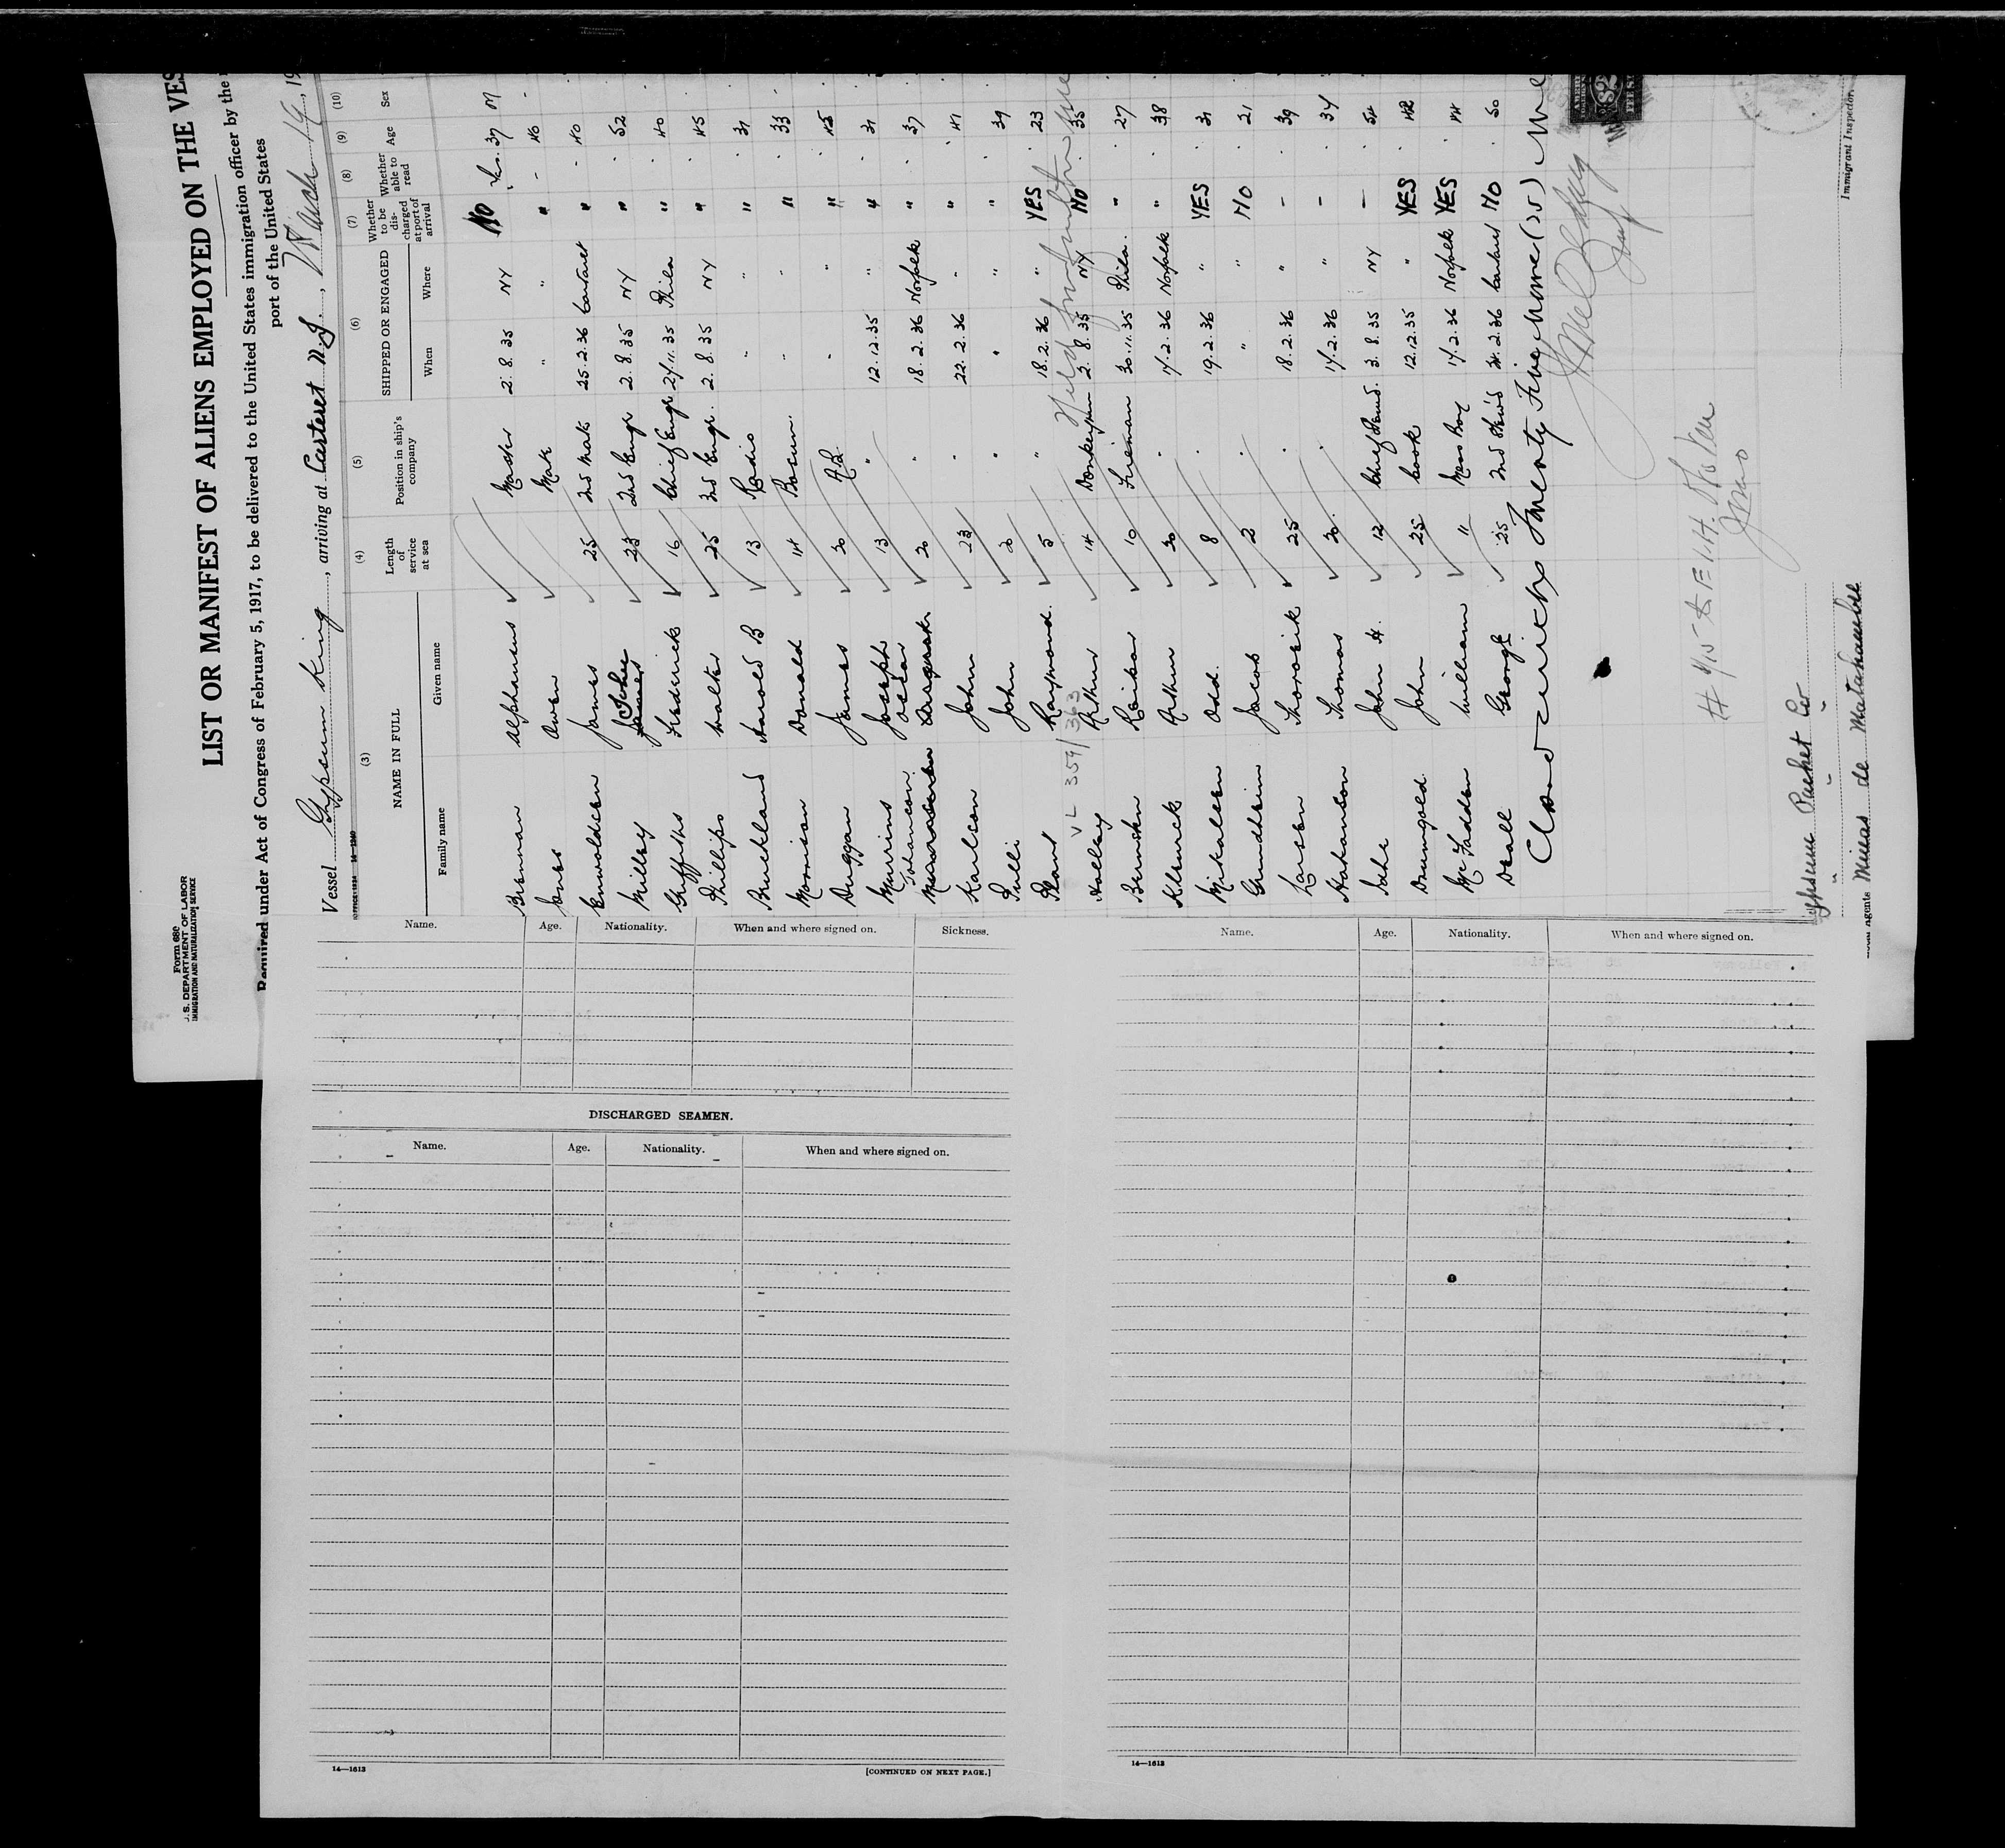 Form 680
U. S. DEPARTMENT OF LABOR
IMMIGRATION AND NATURALIZATION SERVICE
LIST OR MANIFEST OF ALIENS EMPLOYED ON THE VES
Required under Act of Congress of February 5, 1917, to be delivered to the United States immigration officer by the
port of the United States
Vessel Gypsum King, arriving at Carteret N.J., March 19, 19
(3) (4) (5) (6) (7) (8) (9) (10)
NAME IN FULL Length of service at sea Position in ship's company SHIPPED OR ENGAGED Whether to be discharged at port of arrival Whether able to read Age Sex
Family name Given name When Where
Brennan Alphonsus Master 2.8.35 NY No Yes 37 M
Jones Owen Mate " " " - 40 -
Enwoldsen James 25 2nd Mate 25.2.36 Carteret " - 40
Milley John 23 2nd Engr 2.8.35 NY " 52
Griffiths Frederick 16 Chief Engr 27.11.35 Phila " 40
Phillips Walter 25 3rd Engr. 2.8.35 NY " 45
Bruckland Harold B 13 Radio " " " 31
Morrison Donald 14 Bosun. " " " 33
Duggan James 30 A.B. " " " 45
Murrins Joseph 13 " 12.12.35 " " 31
Johanson Oscar 20 " 18.2.36 Norfolk " 37
Karlson John 23 " 22.2.36 " " 41
Tulli John 20 " " " " 39
Raymond. 5 " 18.2.36 " YES 23
VL 359/363
Arthur 14 Donkeyman 2.8.35 NY NO 35
10 Fireman 30.11.35 Phila. " 27
Arthur 30 " 17.2.36 Norfolk " 38
Mikalsen Odd. 8 " 19.2.36 " YES 31
Grundheim Jacob 2 " " " NO 21
Larsen 25 " 18.2.36 " - 39
Hakanson Thomas 30 " 17.2.36 " - 34
John H. 12 Chief Stewd. 3.8.35 NY - 54
Drumgold. John 25 Cook 12.12.35 " YES 42
McFadden William " Mess Boy 17.2.36 Norfolk YES 44
Deall George 25 2nd Stew'd 24.2.36 Carteret NO 50
Closed with Twenty Five names (25)
Gypsum Packet Co
Agents Minas de Matahambre
Immigrant Inspector.
Name. Age. Nationality. When and where signed on. Sickness.
DISCHARGED SEAMEN.
Name. Age. Nationality. When and where signed on.
14—1613 [CONTINUED ON NEXT PAGE.]
Name. Age. Nationality. When and where signed on.
14—1613